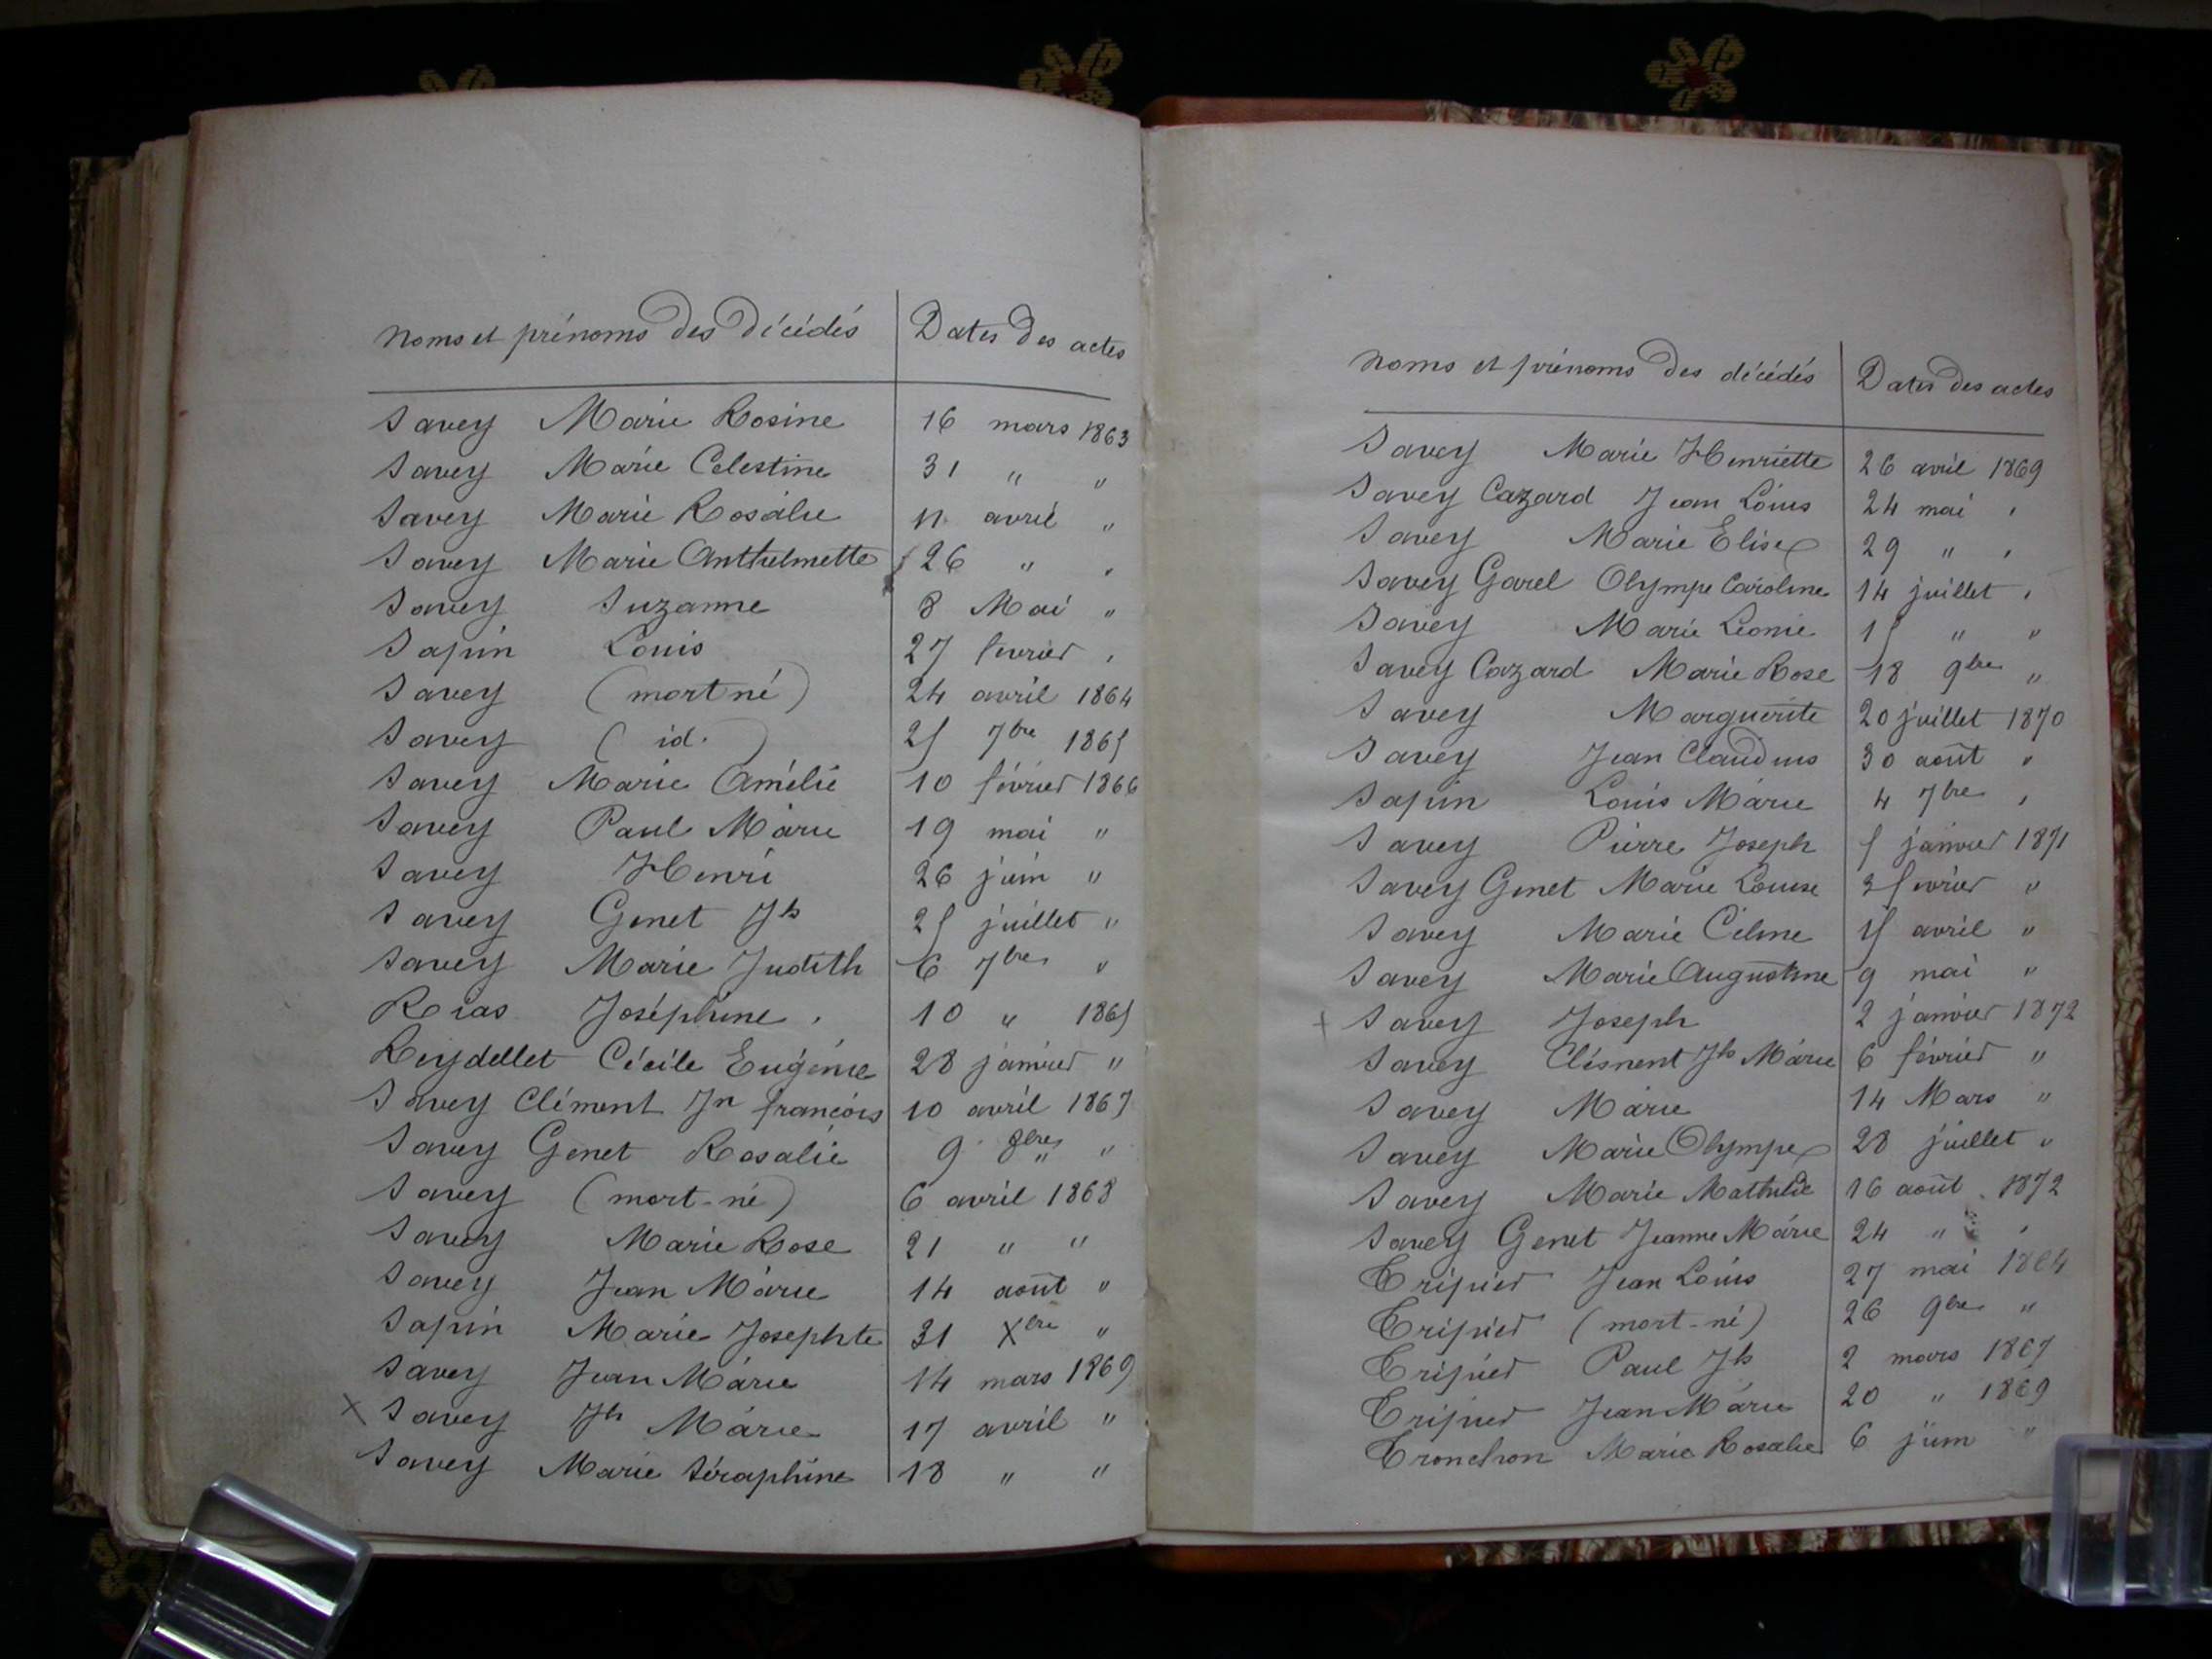 Noms et prénoms des Décédés Dates des actes
Savey Marie Rosine 16 mars 1863
Savey Marie Celestine 31 " "
Savey Marie Rosalie 11 avril "
Savey Marie Anthelmette 26 " "
Savey Suzanne 8 Mai "
Sapin Louis 27 fevrier "
Savey (mort né) 24 avril 1864
Savey (id.) 25 7bre 1865
Savey Marie Amélie 10 février 1866
Savey Paul Marie 19 mai "
Savey Henri 26 juin "
Savey Genet Jh 25 juillet "
Savey Marie Judith 6 7bre "
Roias Joséphine 10 " 1865
Reydellet Cécile Eugénie 28 janvier "
Savey Clément Jn françois 10 avril 1867
Savey Genet Rosalie 9 8bre "
Savey (mort-né) 6 avril 1868
Savey Marie Rose 21 " "
Savey Jean Marie 14 août "
Sapin Marie Josephte 31 Xbre "
Savey Jean Marie 14 mars 1869
X Savey Jh Marie 17 avril "
Savey Marie Séraphine 18 " "
Noms et prénoms des décédés Dates des actes
Savey Marie Henriette 26 avril 1869
Savey Cazard Jean Louis 24 mai "
Savey Marie Elise 29 " "
Savey Garel Olympe Caroline 14 juillet "
Savey Marie Léonie 15 " "
Savey Cazard Marie Rose 18 9bre "
Savey Marguerite 20 juillet 1870
Savey Jean Claudius 30 août "
Sapin Louis Marie 4 7bre "
Savey Pierre Joseph 5 janvier 1871
Savey Genet Marie Louise fevrier "
Savey Marie Céline 15 avril "
Savey Marie Augustine 9 mai "
+ Savey Joseph 2 janvier 1872
Savey Clément Jh Marie 6 février "
Savey Marie 14 Mars "
Savey Marie Olympe 28 juillet "
Savey Marie Mathilde 16 août 1872
Savey Genet Jeanne Marie 24 " "
Tripier Jean Louis 27 mai 1864
Tripier (mort-né) 26 9bre "
Tripier Paul Jh 2 mars 1867
Tripier Jean Marie 20 " 1869
Tronchon Marie Rosalie 6 juin "